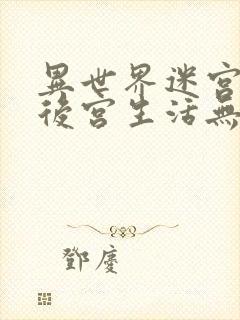 異世界迷宮
後宮生活無
鄧慶